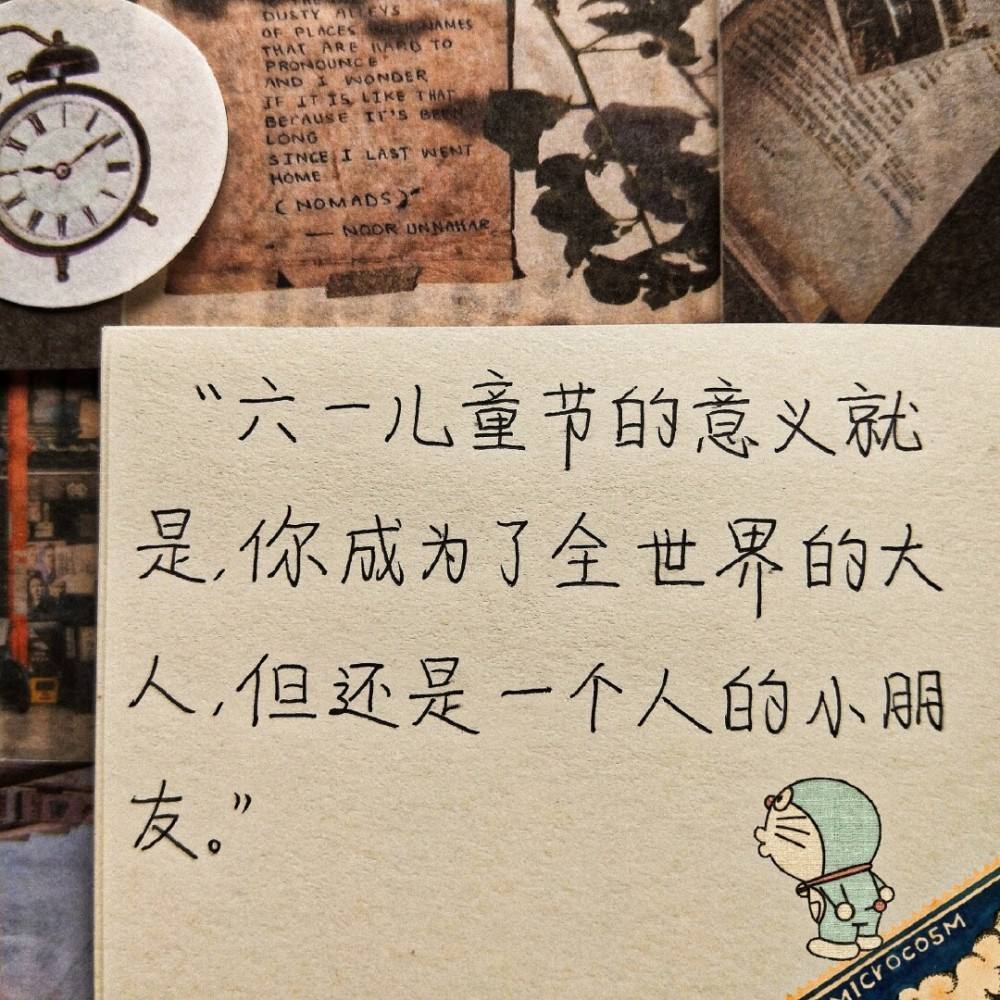 DUSTY ALLEYS
OF PLACES NAMES
THAT ARE HARD TO
PRONOUNCE
AND I WONDER
IF IT IS LIKE THAT
BECAUSE IT'S BEEN
LONG
SINCE I LAST WENT
HOME
(NOMADS)"
— NOOR UNNAHAR
"六一儿童节的意义就
是,你成为了全世界的大
人,但还是一个人的小朋
友。"
MICROCOSM